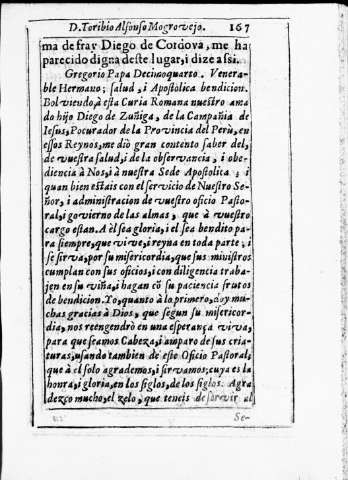 D. Toribio Alfonso Mogrovejo. 167
ma de fray Diego de Cordova, me ha
parecido digna deste lugar, i dize assi.
Gregorio Papa Decimoquarto. Venera-
ble Hermano; salud, i Apostolica bendicion.
Bolviendo, à esta Curia Romana nuestro ama
do hijo Diego de Zuñiga, de la Campañia de
Iesus, Pocurador de la Provincia del Perù, en
essos Reynos, me diò gran contento saber del,
de vuestra salud, i de la observancia, i obe-
diencia à Nos, i à nuestra Sede Apostolica, i
quan bien estais con el servicio de Nuestro Se-
ñor, i administracion de vuestro oficio Pasto-
ral, i govierno de las almas, que à vuestro
cargo estan. A èl sea gloria, i el sea bendito pa-
ra siempre, que vive, i reyna en toda parte, i
se sirva, por su misericordia, que sus ministros
cumplan con sus oficios, i con diligencia traba-
jen en su viña, i hagan cō su paciencia frutos
de bendicion. Yo, quanto à lo primero, doy mu-
chas gracias à Dios, que segun su misericor-
dia, nos reengendrò en una esperança viva,
para que seamos Cabeza, i amparo de sus cria-
turas, usando tambien de este Oficio Pastoral,
que à el solo agrademos, i sirvamos, cuya es la
honra, i gloria, en los siglos, de los siglos. Agra
dezco mucho, el zelo, que teneis de servir al
Se-